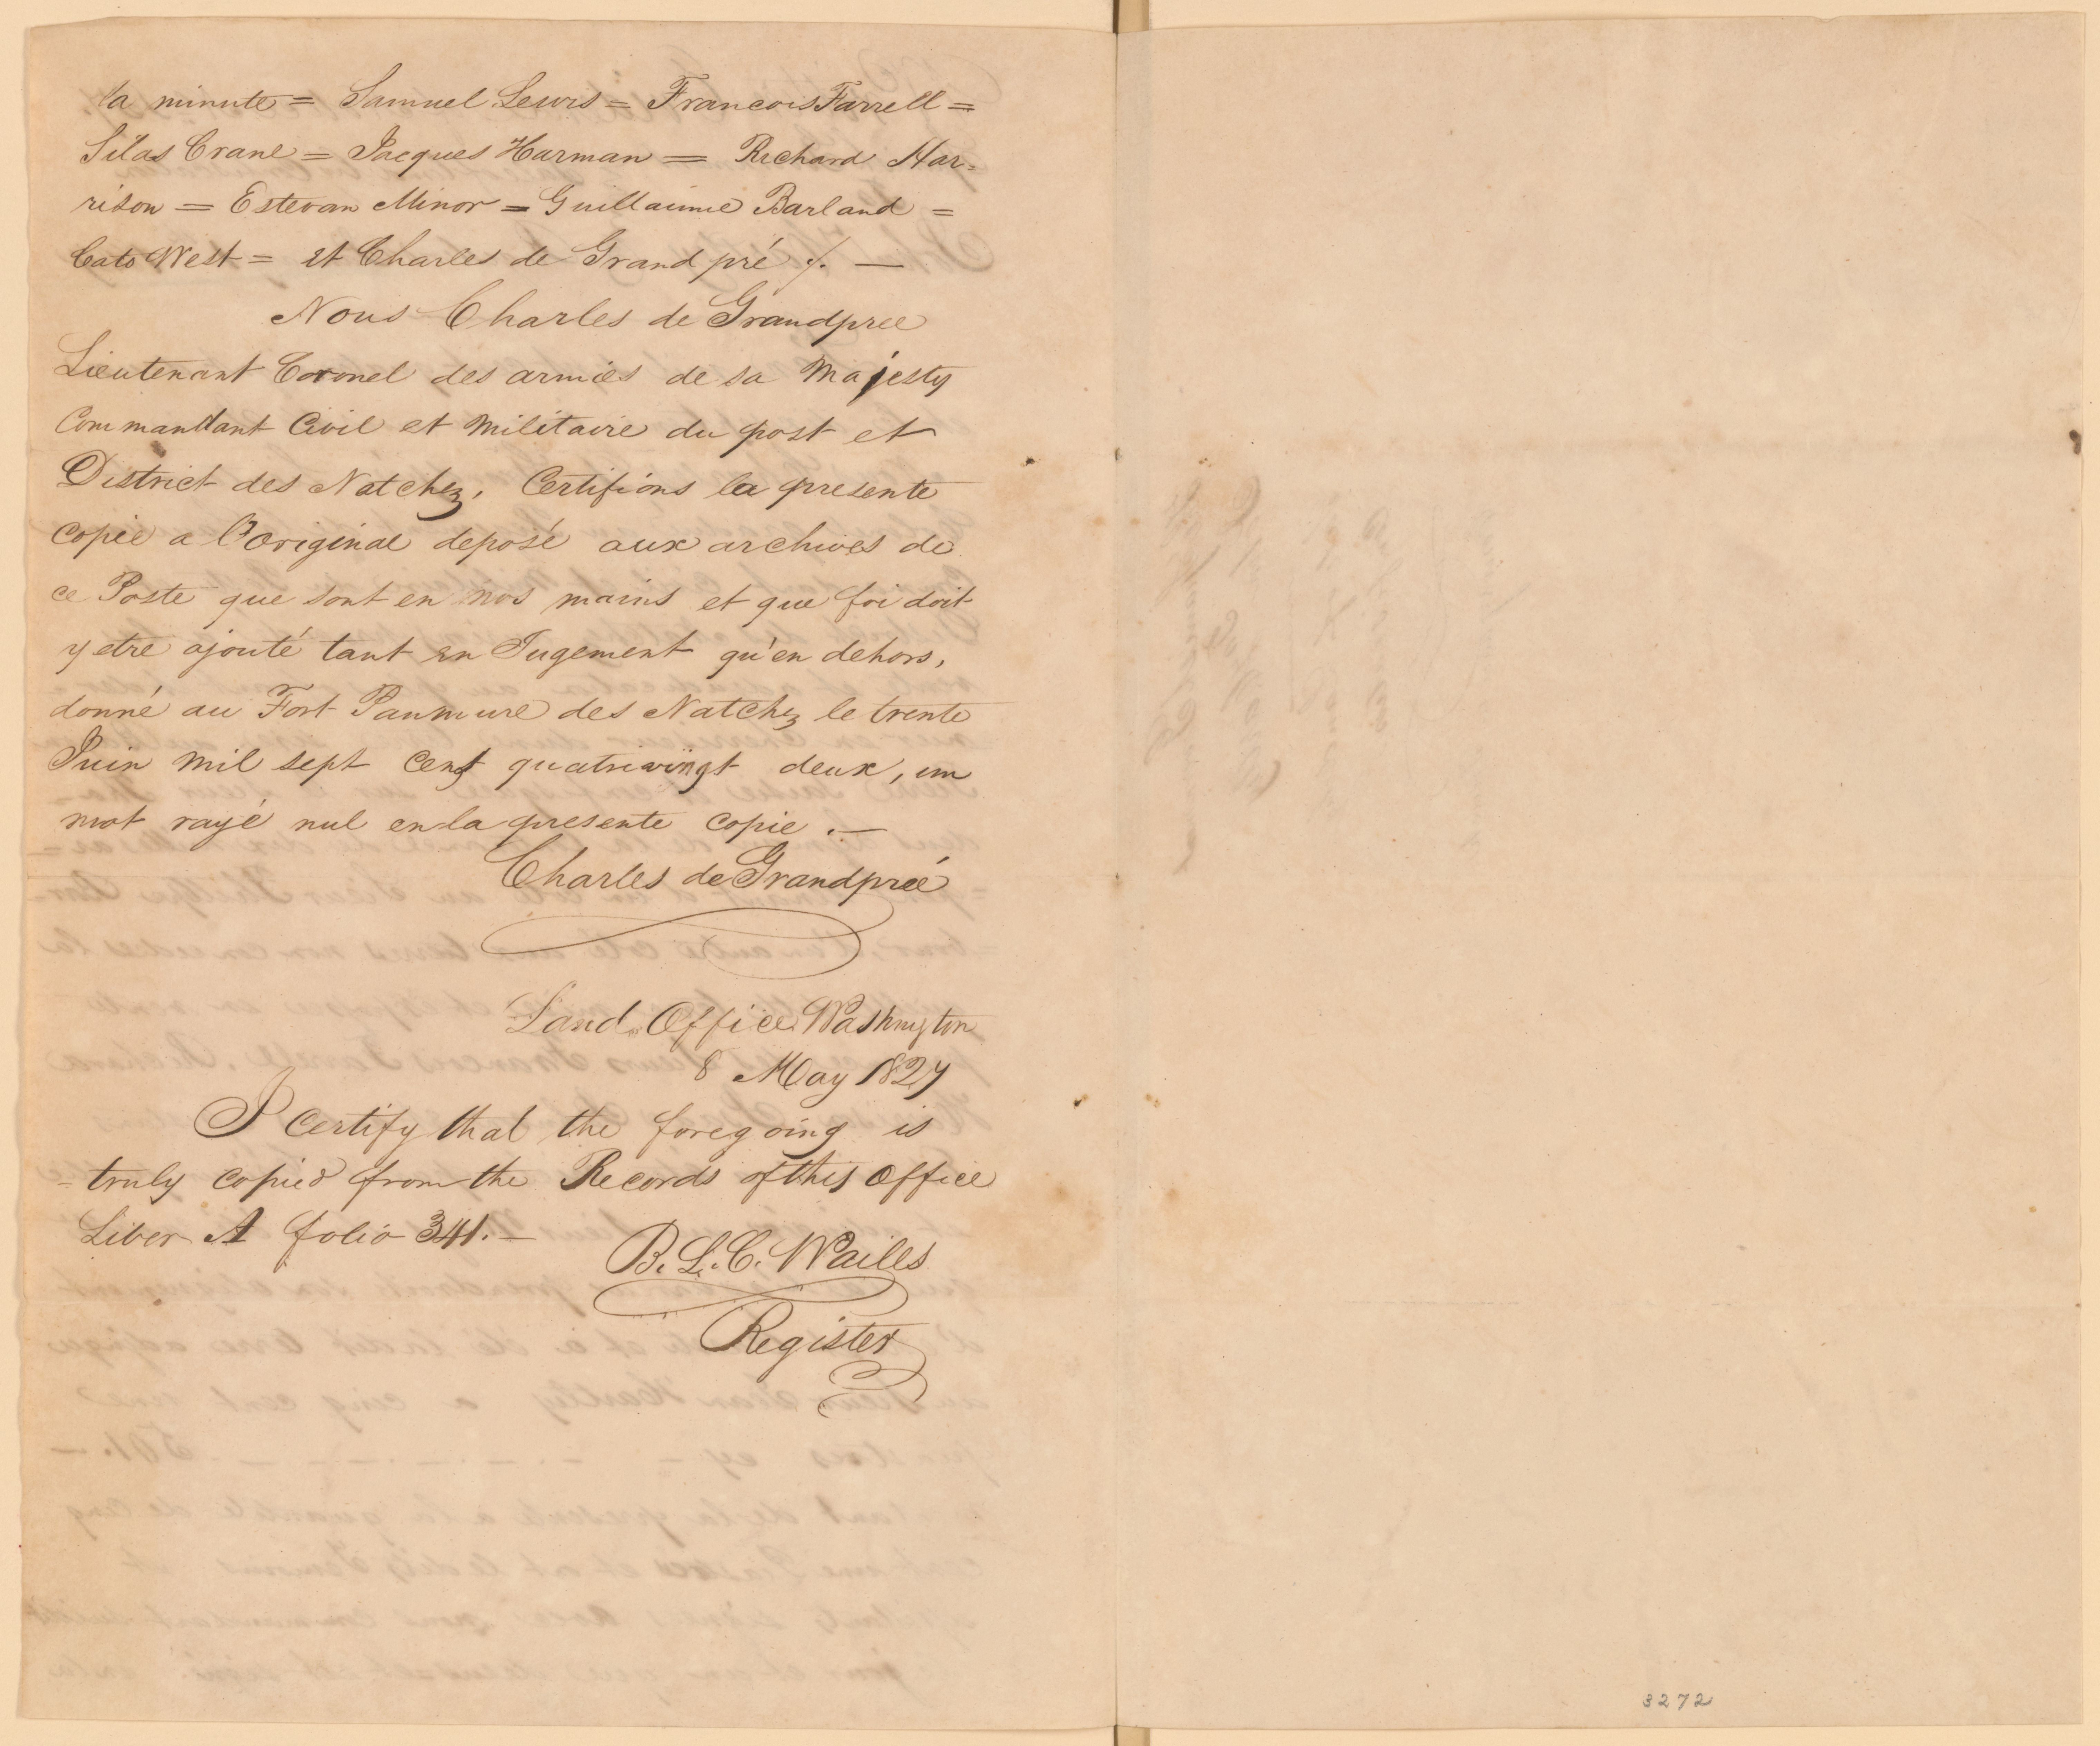 la minute = Samuel Lewis = Francois Farrell =
Silas Crane = Jacques Harman = Richard Har-
rison = Estevan Minor = Guillaume Barland =
Cato West = et Charles de Grand pré ./. —
Nous Charles de Grandpree
Lieutenant Coronel des armies de sa Majesty
Commandant Civil et Militaire du post et
District des Natchez, Certifions la presente
Copie a l'Original deposé aux archives de
ce Poste que sont en nos mains et que foi doit
y etre ajouté tant en Jugement qu'en dehors,
donné au Fort Panmure des Natchez le trente
Juin mil sept Cent quatrivingt deux, un
mot rayé nul en la presente Copie .—
Charles de Grandpreé
Land Office Washington
8 May 1827
I Certify that the foregoing is
truly copied from the Records of this Office
Liber A folio 341. —
B. L. C. Wailes
Register
3272